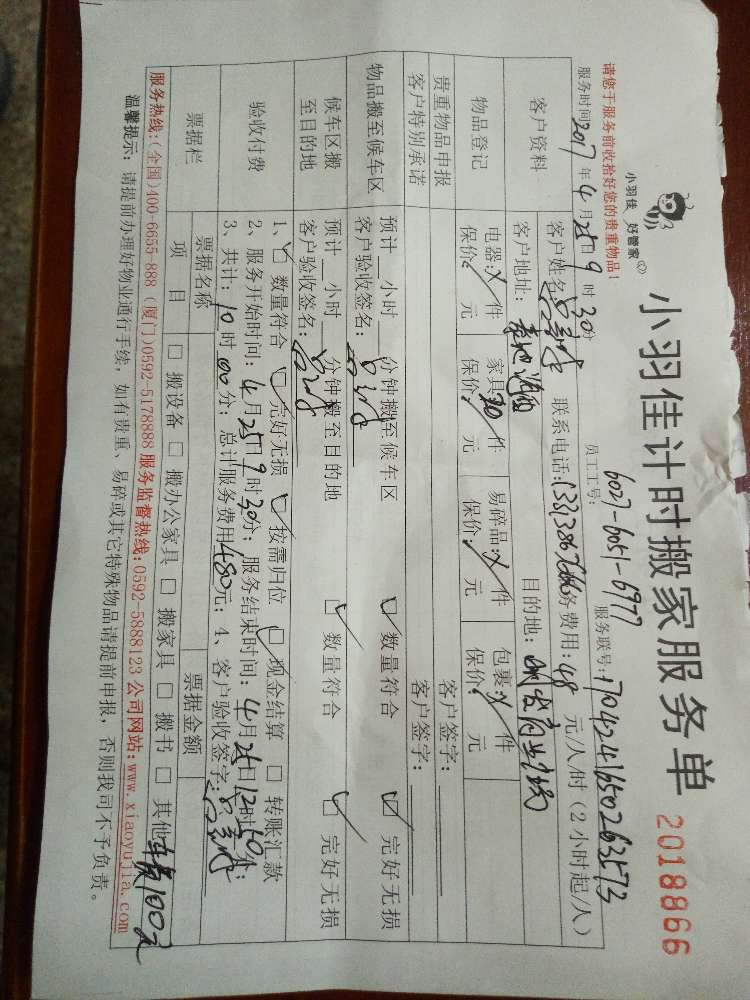 小羽佳 好管家
小羽佳计时搬家服务单
2018866
请您于服务前收拾好您的贵重物品!
员工工号: 6027-6051-6977
服务时间2017年4月25日9时30分
服务联号:
客户资料
客户姓名:
联系电话:
务费用:48元/人/时(2小时起/人)
客户地址:
目的地:
物品登记
电器: 件 家具30件 易碎品: 件 包裹: 件
保价: 元 保价: 元 保价: 元 保价: 元
贵重物品申报
客户签字:
客户特别承诺
客户签字:
物品搬至候车区
预计 小时 分钟搬至候车区 ☑ 数量符合 ☑ 完好无损
客户验收签名:
候车区搬至目的地
预计 小时 分钟搬至目的地 ☑ 数量符合 ☑ 完好无损
客户验收签名:
验收付费
1、☑ 数量符合 ☑ 完好无损 ☑ 按需归位 ☑ 现金结算 □ 转账汇款
2、服务开始时间:4月25日9时30分; 服务结束时间:4月25日12时 分;
3、共计:10时00分; 总计服务费用480元; 4、客户验收签字:
票据栏
票据名称
票据金额
项目
□ 搬设备 □ 搬办公家具 □ 搬家具 □ 搬书 □ 其他车费100元
服务热线:(全国)400-6655-888 (厦门)0592-5178888 服务监督热线:0592-5888123 公司网站:www.xiaoyujia.com
温馨提示: 请提前办理好物业通行手续, 如有贵重、易碎或其它特殊物品请提前申报, 否则我司不予负责。